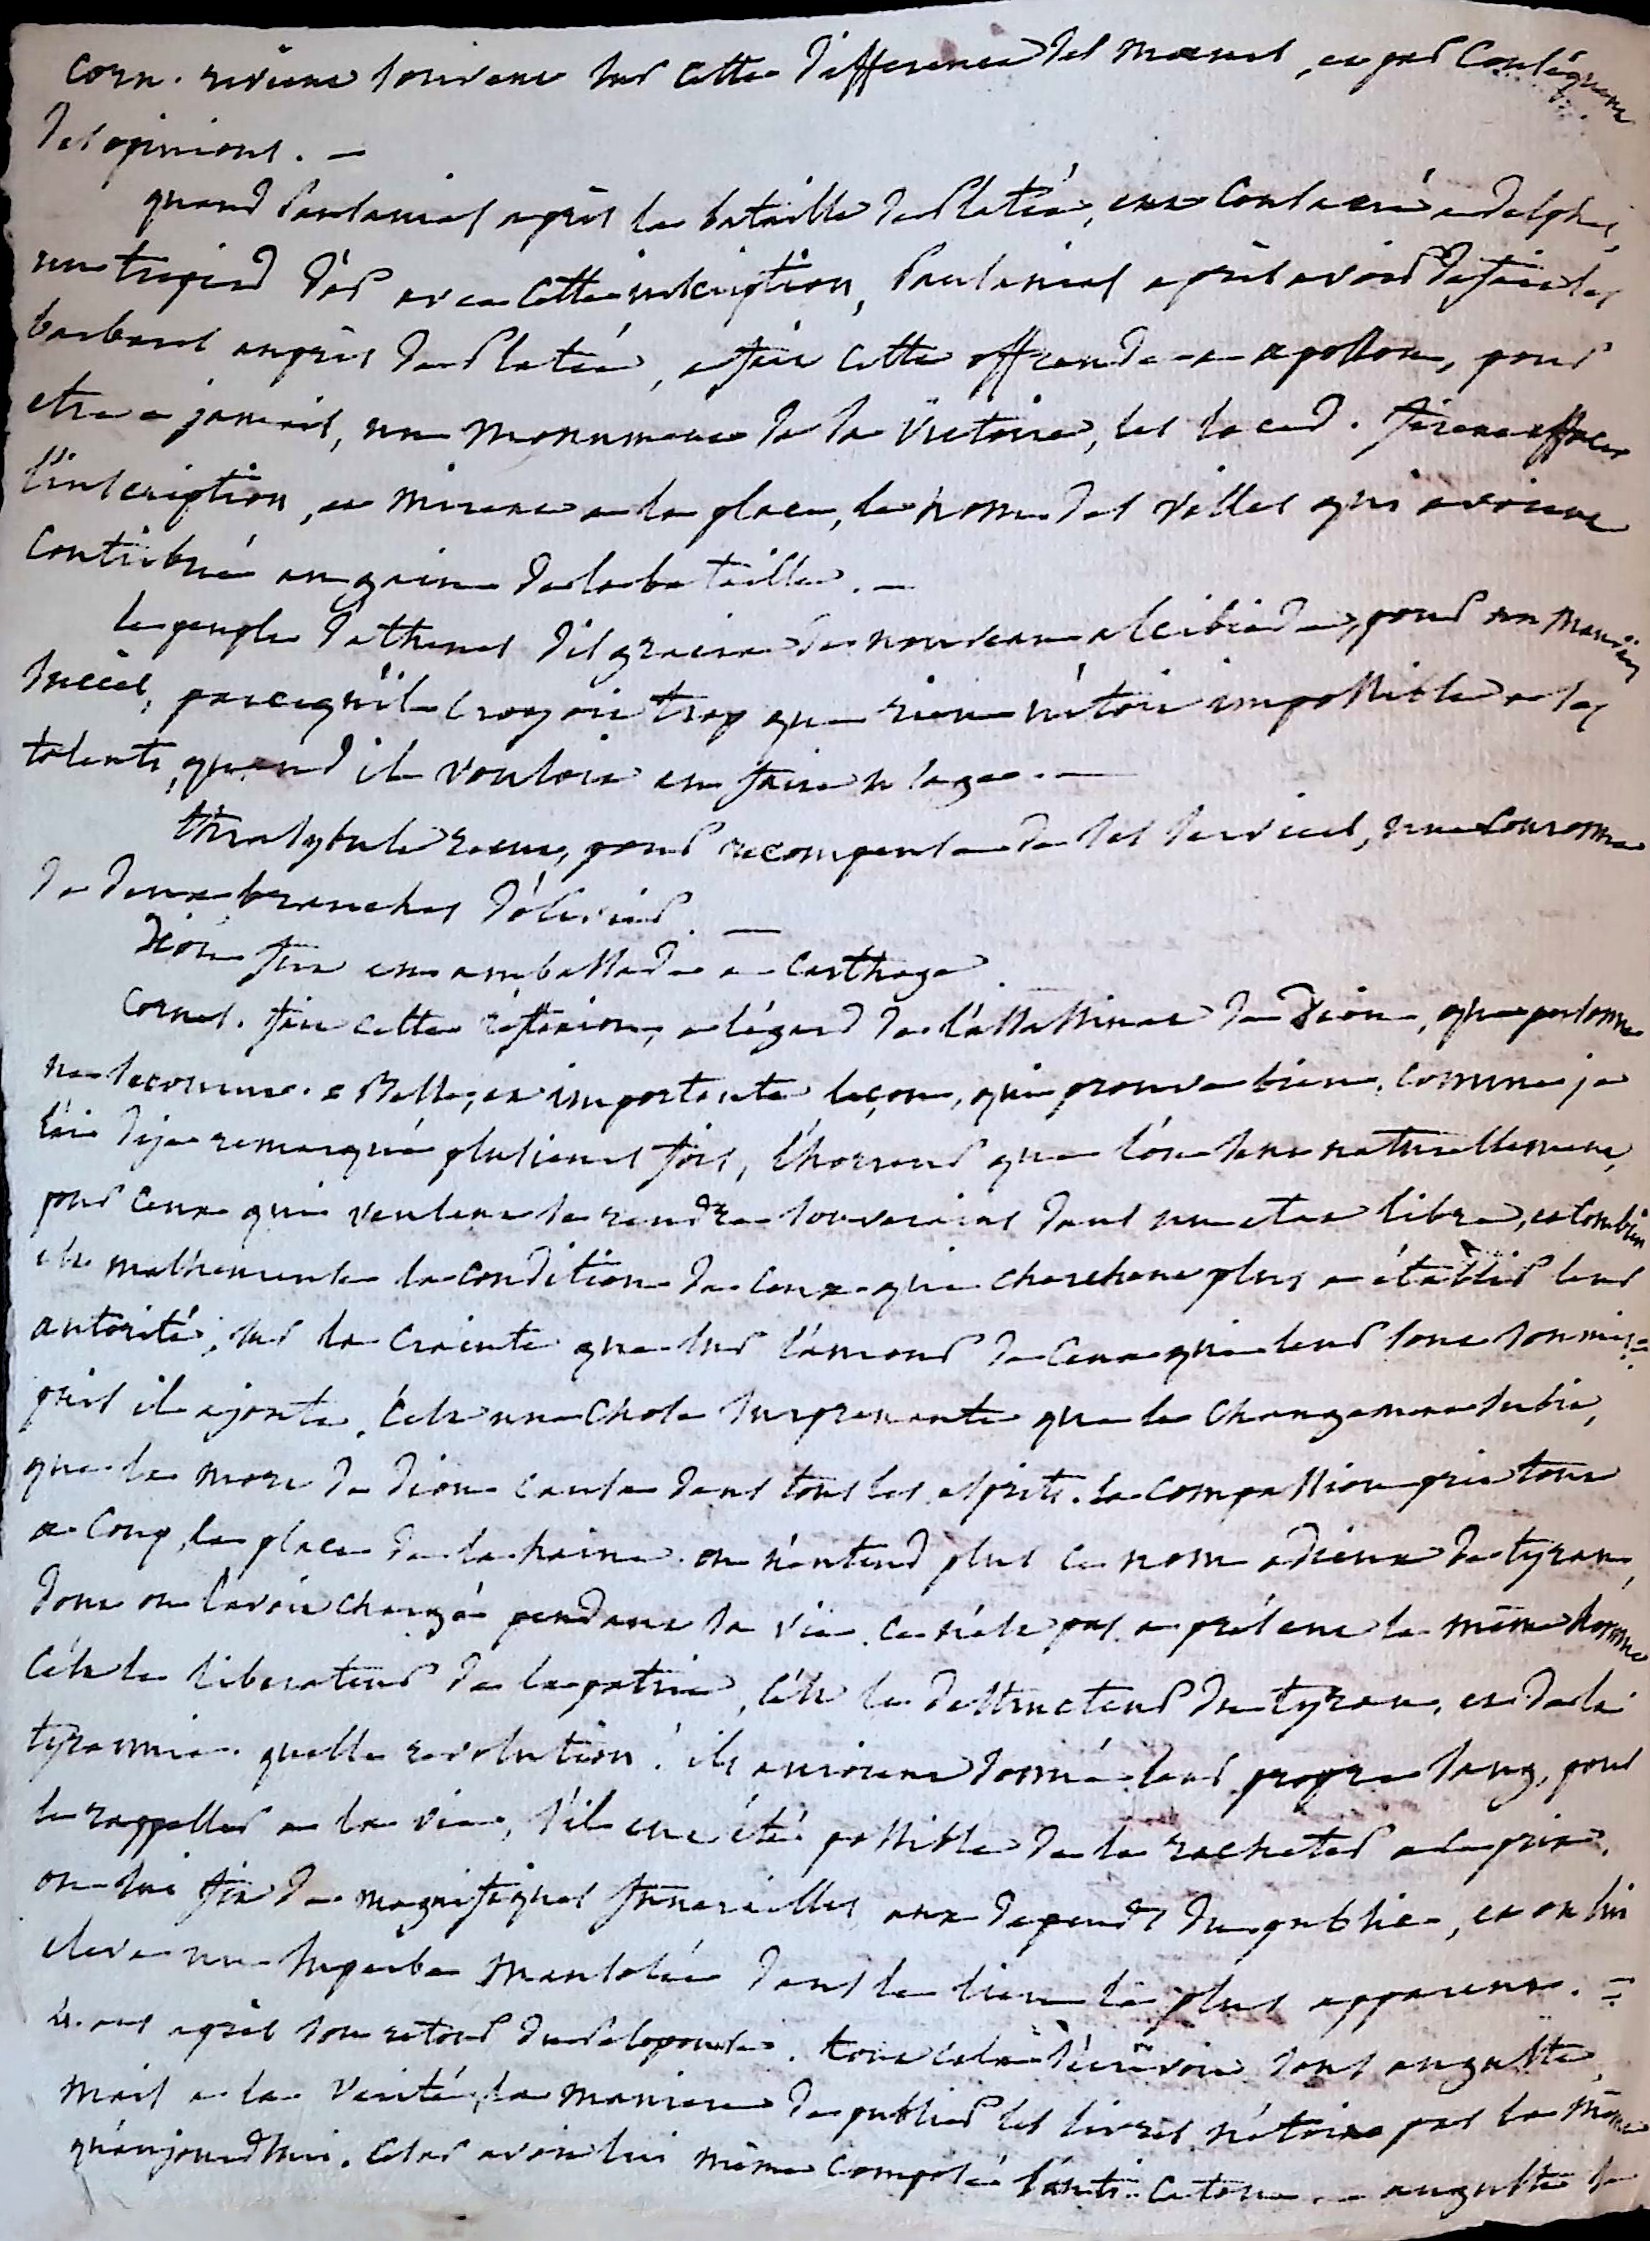 Corn. revient souvent sur cette difference des mœurs, et par Conséquent
des opinions. —
quand Pausanias après la bataille de Platée, eut Consacré a delphes,
un trepied d'or avec cette inscription, Pausanias après avoir défait les
barbares auprès de Platée, a fait cette offrande a apollon, pour
etre a jamais, un monument de sa victoire, les laced. firent effacer
l'inscription, et mirent a la place, le nom des villes qui avoient
Contribué au gain de la bataille. —
le peuple d'athenes disgracia de nouveau alcibiade, pour un mauvais
succès, parcequ'il croyoit trop que rien n'étoit impossible a ses
talents, quand il vouloit en faire usage. —
thrasybule recut, pour recompense de ses services, une Couronne
de deux branches d'olivier. —
Dion fut en ambassade a Carthage.
Cornel. fait cette réflexion, a l'égard de l'assassinat de Dion, que personne
ne secourut. Belle, et importante leçon, qui prouve bien, comme je
l'ai deja remarqué plusieurs fois, l'horreur que l'on sent naturellement,
pour ceux qui veulent se rendre souverains dans un etat libre, et combien
est malheureuse la condition de ceux qui cherchent plus a établir leur
autorité, sur la crainte que sur l'amour de ceux qui leur sont soumis =
puis il ajoute, c'est une chose surprenante que le changement subit,
que la mort de dion causa dans tous les esprits. la compassion prit tout
a coup, la place de la haine. on n'entend plus ce nom odieux de tyran,
dont on l'avoit chargé pendant sa vie. ce n'est pas a présent le même homme
c'est le liberateur de la patrie, c'est le destructeur du tyran, et de la
tyrannie. quelle revolution! ils auroient donné leur propre sang, pour
le rappeller a la vie, s'il eut été possible de le racheter a ce prix.
on lui fit de magnifiques funerailles aux depends du public, et on lui
eleva un superbe mausolée dans le lieu le plus apparent. =
4. ans après son retour du Peloponese. tout cela s'écrivoit sous auguste,
mais a la verité, la maniere de publier les livres n'étoit pas la même
qu'aujourd'hui. Cesar avoit lui même composé l'anti-Caton. — auguste se